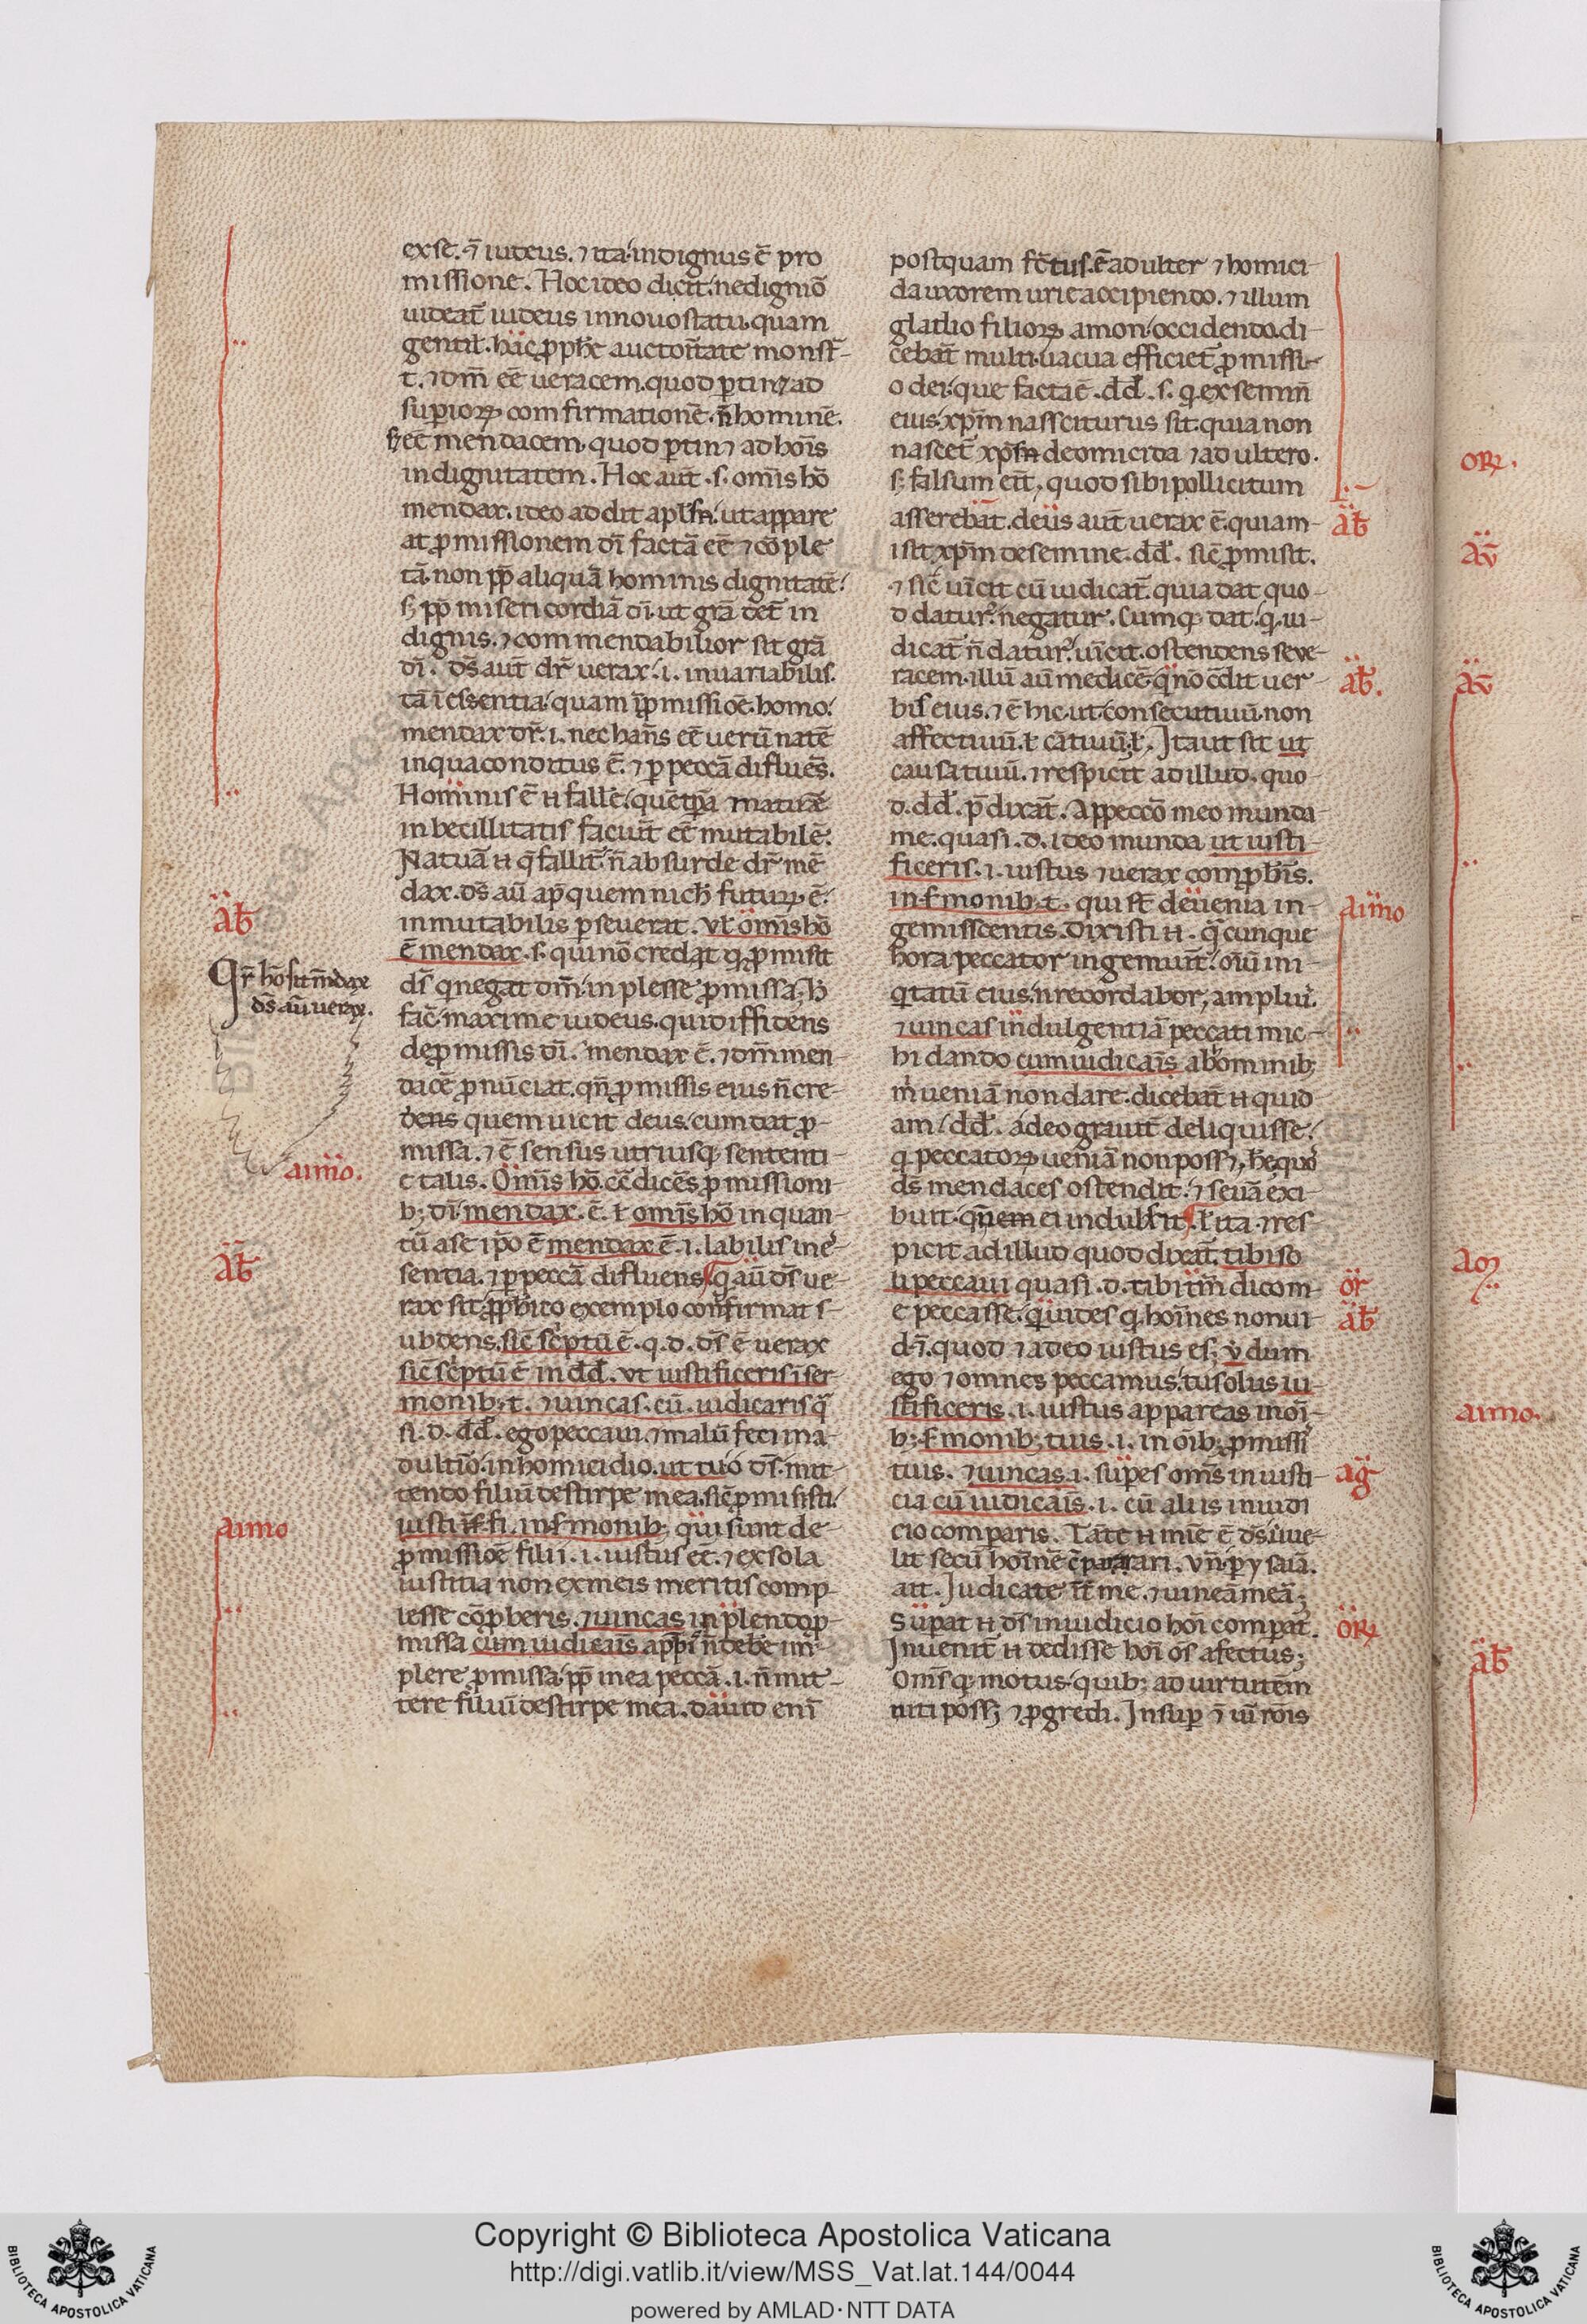 ex se. qͫ iudeus. ⁊ ita indignus ē pro
missione. Hoc ideo dicit. ne digniō
uideat̄ iudeus in nouo statu. quam
gentil̓. hāc ꝓph̓e auctoritate monst̄r
t. ⁊ dm̄ eē ueracem. quod ꝑtin⁊ ad
supiorꝝ comfirmationē. ⁊ hominē.
eē mendacem. quod ꝑtin⁊ ad hoīs
indignitatem. Hoc aut̄. s. omīs hō
mendax. ideo addit apl̓s. ut appare
at ꝓmissionem dī factā eē ⁊ cōple
tā. non pp̄ aliquā hominis dignitatē.
s; pp̄ misericordiā dī. ut grā det̄ in
dignis. ⁊ commendabilior sit grā
dī. ds̄ aut̄ dr̄ uerax. i. inuariabilis.
tā ī essentia. quam ī ꝓmissiōe. homo.
mendax dr̄. i. nec habn̄s eē uerū natē
in qua conditus ē. ⁊ ꝑ peccā difluēs.
Hominis ē n̄ falle. quē
inbecillitatis faciūt eē mutabilē.
Natuā n̄ q̄ fallit. n̄ absurde dr̄ mē
dax. ds̄ aū ap̄ quem nich̓ futurꝝ ē.
inmutabilis ꝑseuerat. Vl̓ omīs hō
ē mendax. s. qui nō credat qꝫ ꝓmisit
ds̄ q negat dm̄ inplesse ꝓmissa. h̓
fac̄ maxime iudeus. qui diffidens
de ꝓmissis dī. mendax ē. ⁊ dm̄ men-
dacē ꝓnūciat. qn̄ ꝓmissis eius n̄ cre-
dens quem uicit deus. cum dat ꝓ-
missa. ⁊ ē sensus utriusqꝫ sententi-
e talis. Omīs hō. cōtdicēs ꝓmissioni-
bꝫ dī mendax. ē. l̓ omīs hō in quan-
tū a se ipo ē mendax ē. i. labilis in e-
sentia. ⁊ ꝑ peccā difluens. q aū ds̄ ue-
rax sit. ꝓph̓ico exemplo confirmat s-
ubdens. sic̄ sc̓ptū ē. q. d. ds̄ ē uerax
sic̄ sc̓ptū ē in dd̄. Vt iustificeris ī ser-
monibꝫ t. ⁊ uincas. cū. iudicaris. qͣ
si. d. dd̄. ego peccaui. ⁊ malū feci in a-
dultio. in homicidio. ut tu o ds̄. mit-
tendo filiū de stirpe mea. sic̄ ꝓmisisti.
iustif. fi. in s̄monibꝫ. qui sunt de-
ꝓmissiōe filii. i. iustus eē. ⁊ ex sola
iustitia non ex meis meritis comp-
lesse cōꝓberis. ⁊ uincas inplendo ꝓ-
missa cum iudicaīs n̄ debe im-
plere ꝓmissa. pp̄ mea peccā. i. n̄ mit-
tere filiū de stirpe mea. dauid enī
postquam fc̄tus. ē adulter ⁊ homici-
da uxorem urie accipiendo. ⁊ illum
gladio filiorꝝ amon occidendo. di-
cebat̄ multi. uacua efficiet̄ ꝓmissi-
o dei. que facta ē. dd̄. s. q. ex semin̄
eius. xp̄m nasciturus sit. quia non
nascet̄ xp̄s de omicida ⁊ adultero.
s; falsum erit. quod sibi pollicitum
asserebat. deus aut̄ uerax ē. quia m-
isit xp̄m de semine. dd̄. sic̄ ꝓmisit.
⁊ sic̄ uīcit cū iudicat̄. quia dat quo-
d datur. negatur. Cumqꝫ dat. q. iu-
dicat̄ n̄ datur. uīcit. ostendens se ue-
racem. illū aū mēdacē q̄ nō cdit uer-
bis eius. ⁊ ē hic. ut. consecutiuū. non
affectiuū. l̓ cātiuū. l̓. Ita ut sit ut
causatiuū. ⁊ respicit ad illud. quo-
d. dd̄. p̄dixat̄. A peccō meo munda
me. quasi. d. ideo munda ut iusti-
ficeris. i. iustus ⁊ uerax comꝓbīs.
in s̄monibꝫ. t. qui st̄ de uenia in-
gemisscentis. Dixisti n̄. q̄cunque
hora peccator ingemuit̄. oīū ini-
qtatū eius. n̄ recordabor, ampliꝰ.
⁊ uincas indulgentiā peccati mic-
hi dando cum iudicaīs ab ominibꝫ
m̓ ueniā non dare. dicebat̄ n̄ quid
am. dd̄. adeo grauit̄ deliquisse.
q peccatorꝝ ueniā non poss⁊, hēquo
ds̄ mendaces ostendit. ⁊ se uā exi-
buit. ei indulsit. l̓ ita. ⁊ res-
picit ad illud quod dixat̄. tibi so
li peccaui quasi. d. tibi tm̄ dico m-
e peccasse. q uides q hoīnes non ui-
dīt. quod ⁊ adeo iustus es; ꝟ dum
ego ⁊ omnes peccamus. tu solus iu-
stificeris. i. iustus appareas in oī-
bꝫ s̄monibꝫ tuis. i. in oībꝫ ꝓmissi
tuis. ⁊ uincas. i. supes oms̄ in iusti-
cia cū iudicaīs. i. cū aliis in iudi
cio comparis. Tāte n̄ mīe ē ds̄. ut ue-
lit secū hoīnē cōparari. Vn̄ ꝑ ysaiā.
ait. Iudicate īt̄ me. ⁊ uineā meā;
Supat n̄ ds̄ in iudicio hoī compat̄.
Inuenit̄ n̄ dedisse hoī oīs afectus;
Oms̄ qꝫ motus. quibꝫ ad uirtutēm
niti poss; ⁊ ꝓgredi. Insup ⁊ uī rōis
Qr̄ hō sit mdax
ds̄ aū uerax.
āb
aimo.
āb
aimo
āb
āb.
aimo
or
āb
ag
orꝝ
orꝝ.
āb
aimo.
Copyright © Biblioteca Apostolica Vaticana
http://digi.vatlib.it/view/MSS_Vat.lat.144/0044
powered by AMLAD·NTT DATA
BIBLIOTECA APOSTOLICA VATICANA
BIBLIOTECA APOSTOLICA VATICANA